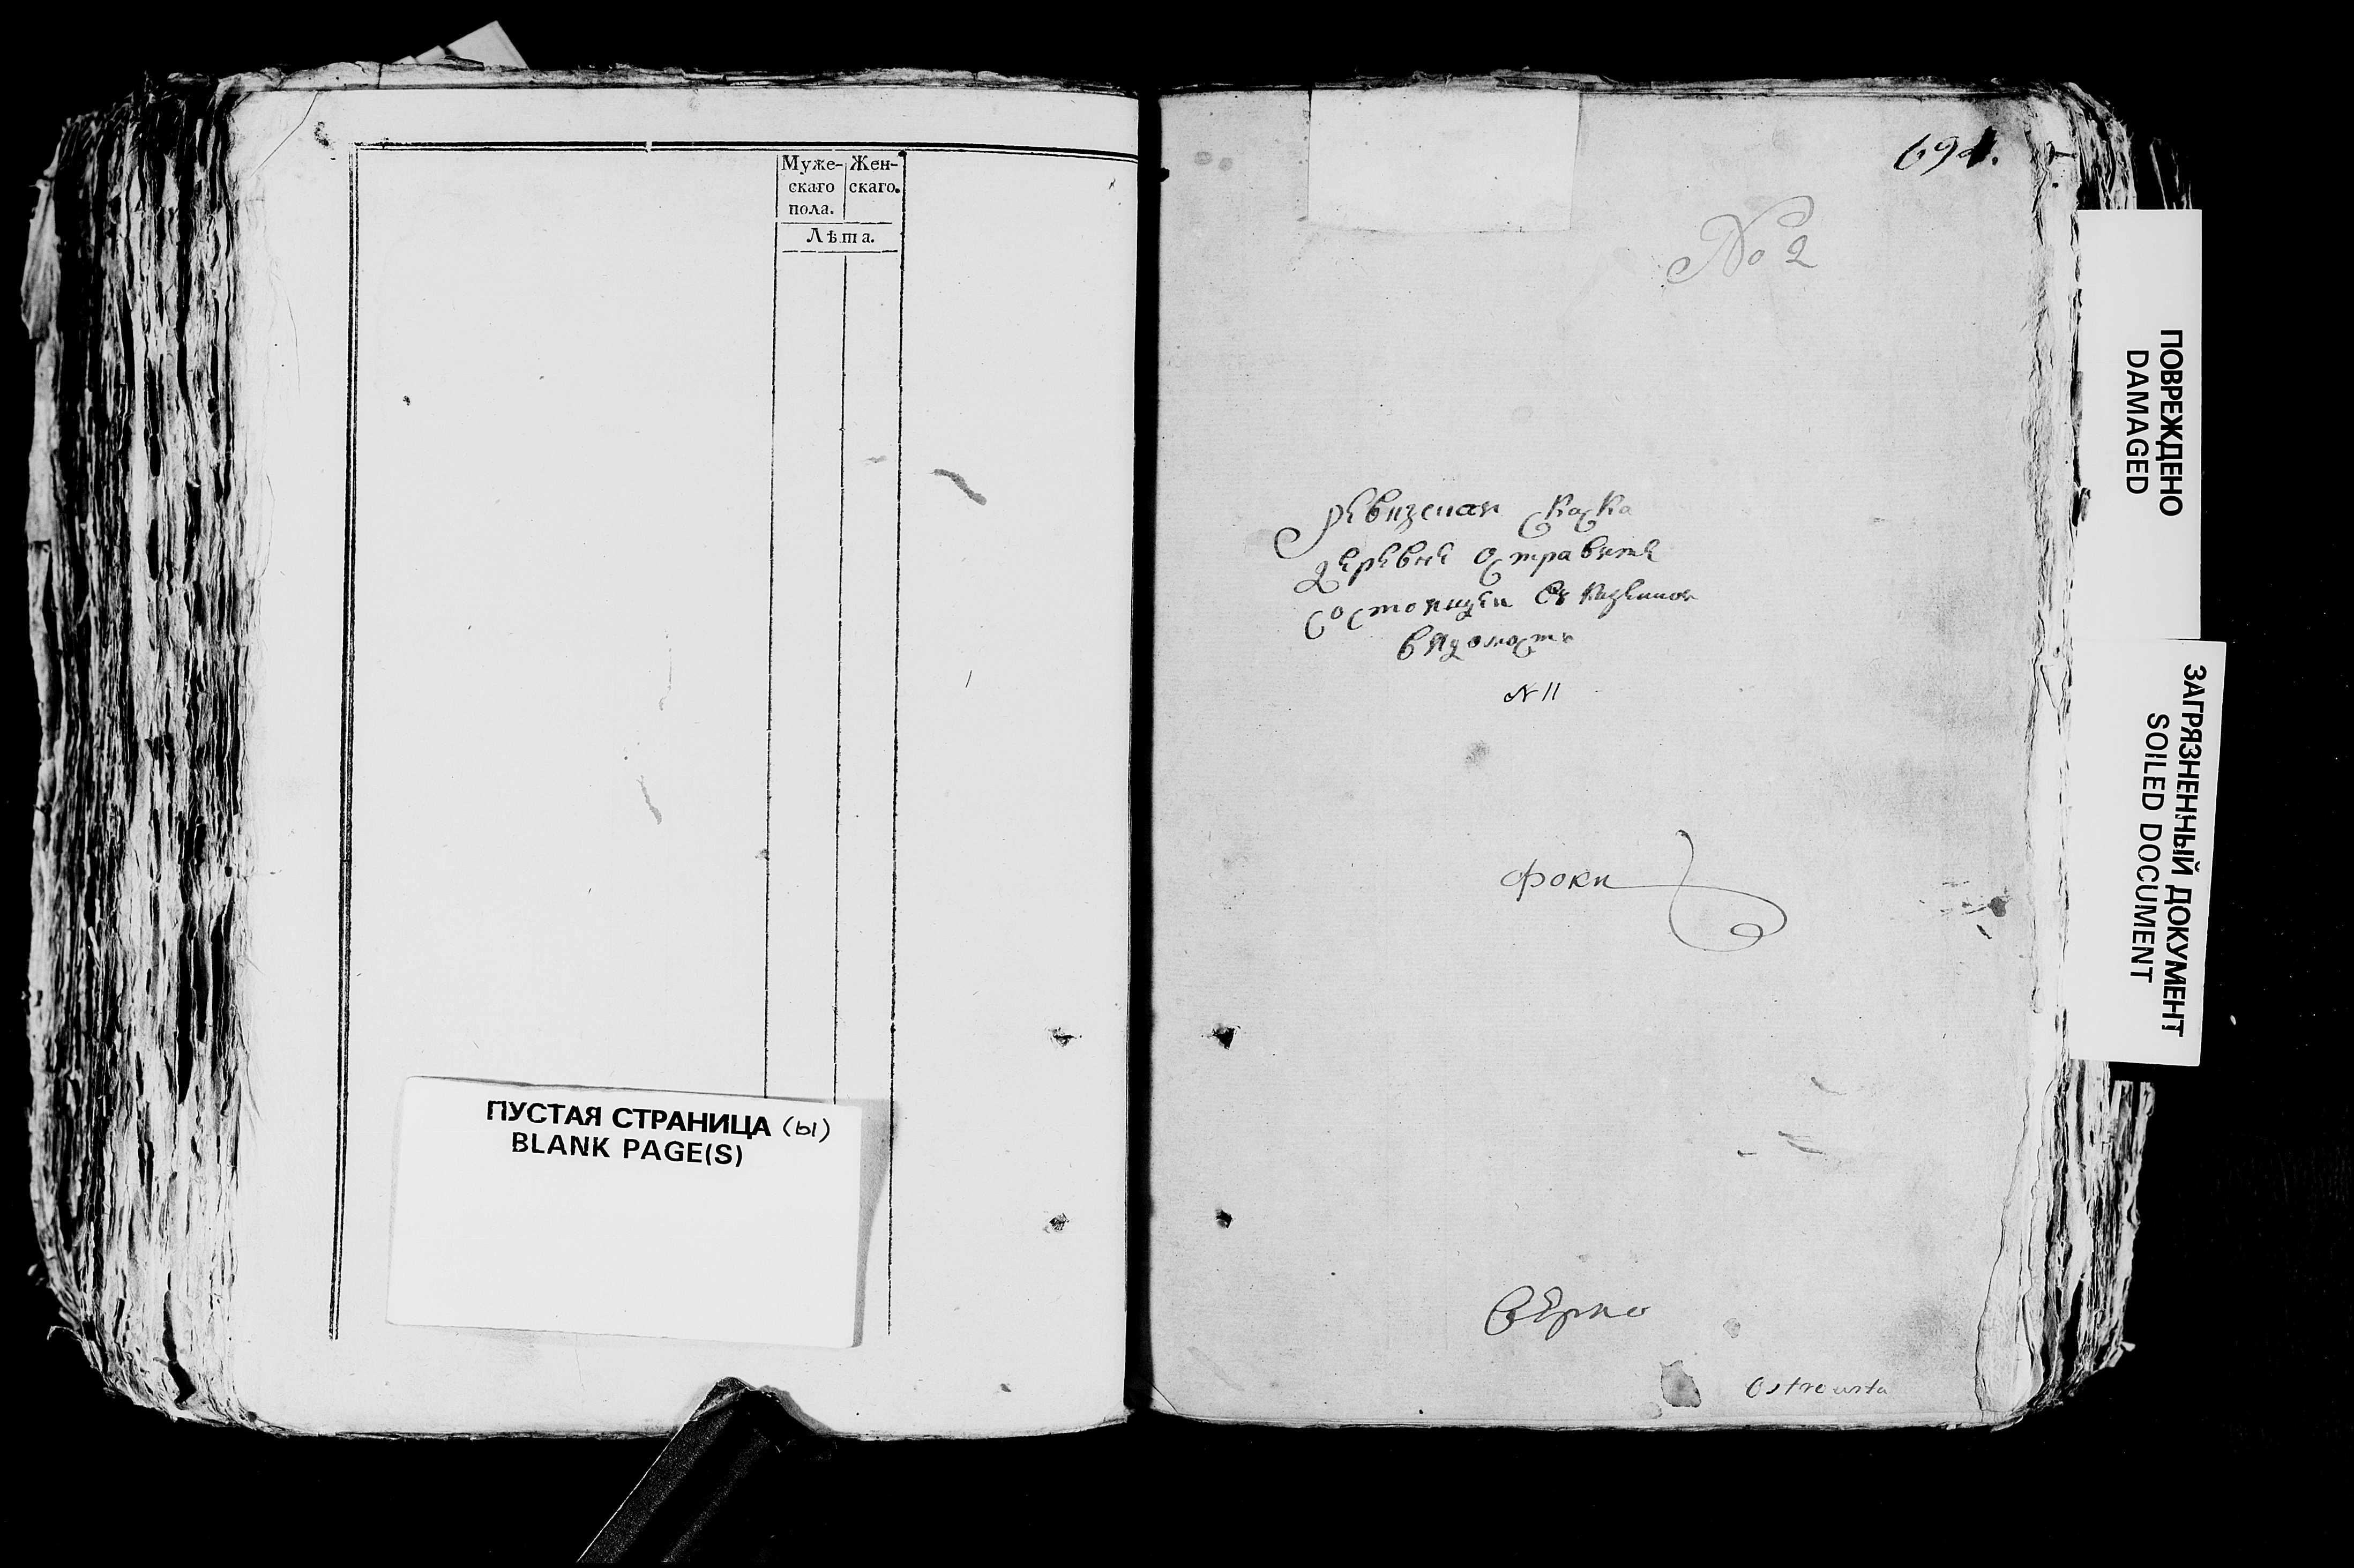 Муже- Жен-
скаго скаго.
пола.
Лѣта.
ПУСТАЯ СТРАНИЦА (ы)
BLANK PAGE(S)
694.
No 2
ревизская скаска
деревни Остравита
состоящеи
ведомости
N 11
фоки
вѣрно
Ostrowita
ПОВРЕЖДЕНО
DAMAGED
ЗАГРЯЗНЕННЫЙ ДОКУМЕНТ
SOILED DOCUMENT